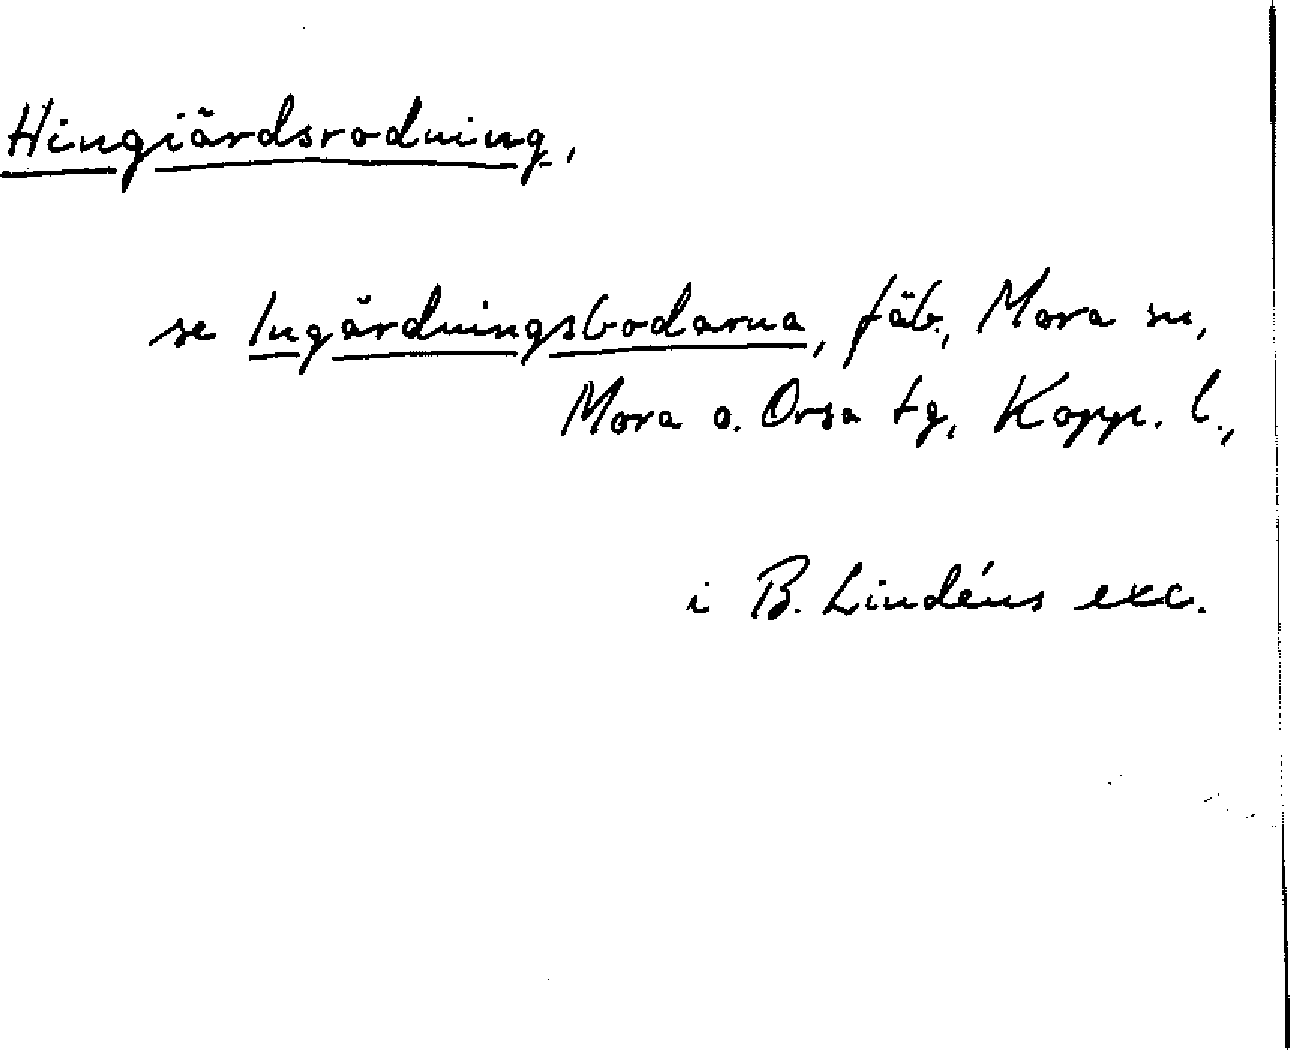 Hingiärdsrodning,
se Ingärdningsbodarna, fäb., Mora sn,
Mora o. Orsa tg, Kopp. l.,
i B. Lindéns exc.